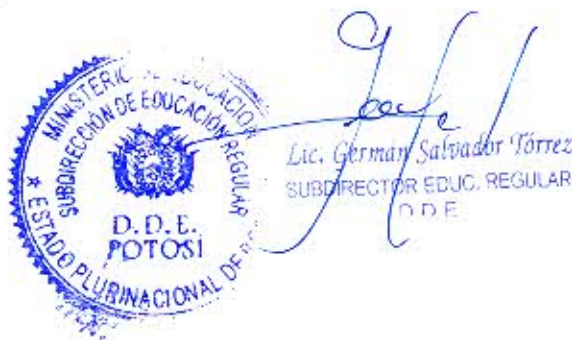 MINISTERIO DE EDUCACION
SUBDIRECCIÓN DE EDUCACIÓN REGULAR
D.D.E.
POTOSÍ
★ ESTADO PLURINACIONAL DE
Lic. German Salvador Tórrez
SUBDIRECTOR EDUC. REGULAR
D.D.E.